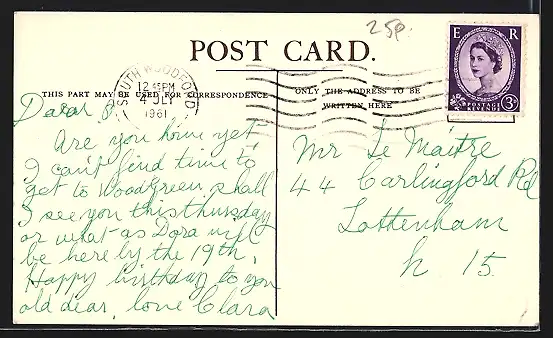 25p.
POST CARD.
THIS PART MAY BE USED FOR CORRESPONDENCE
ONLY THE ADDRESS TO BE
WRITTEN HERE
SOUTH WOODFORD
12 45PM
4 JLY
1961
E R
POSTAGE
REVENUE
3D
Dear J.
Are you home yet,
I can't find time to
get to Woodgreen, shall
I see you this thursday
or what as Dora will
be here by the 19th,
Happy birthday to you
old dear, love Clara
Mr Le Maitre
44 Carlingford Rd
Tottenham
N 15.